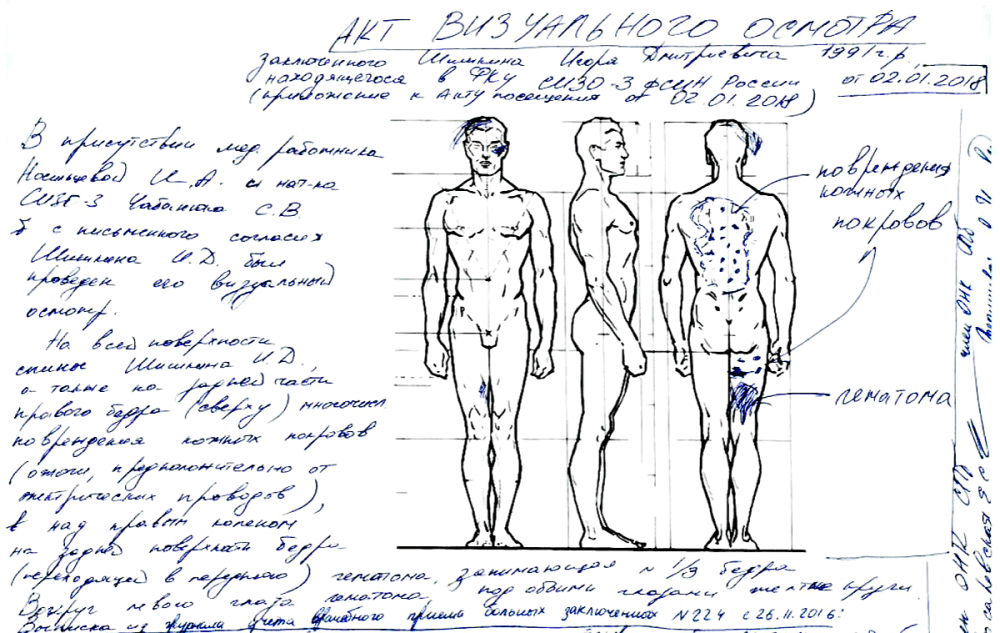 АКТ ВИЗУАЛЬНОГО ОСМОТРА
заключенного Шишкина Игоря Дмитриевича 1991 г.р.,
находящегося в ФКУ СИЗО-3 ФСИН России от 02.01.2018
(приложение к Акту посещения от 02.01.2018)
В присутствии мед. работника
И.А. и нач-ка
СИЗО-3 С.В.
с письменного согласия
Шишкина И.Д. был
проведен его визуальный
осмотр.
На всей поверхности
спины Шишкина И.Д.,
а также на задней части
правого бедра (сверху) многочисл.
повреждения кожных покровов
(ожоги, предположительно от
электрических проводов),
над правым коленом
на задней поверхности бедра
(переходящей в переднюю) гематома, занимающая ≈ 1/3 бедра
Вокруг левого глаза гематома, под обоими глазами желтые круги.
Выписка из журнала учета врачебного приема больных заключенных №224 с 26.11.2016:
повреждения
кожных
покровов
гематома
член ОНК СПб
член ОНК СПб